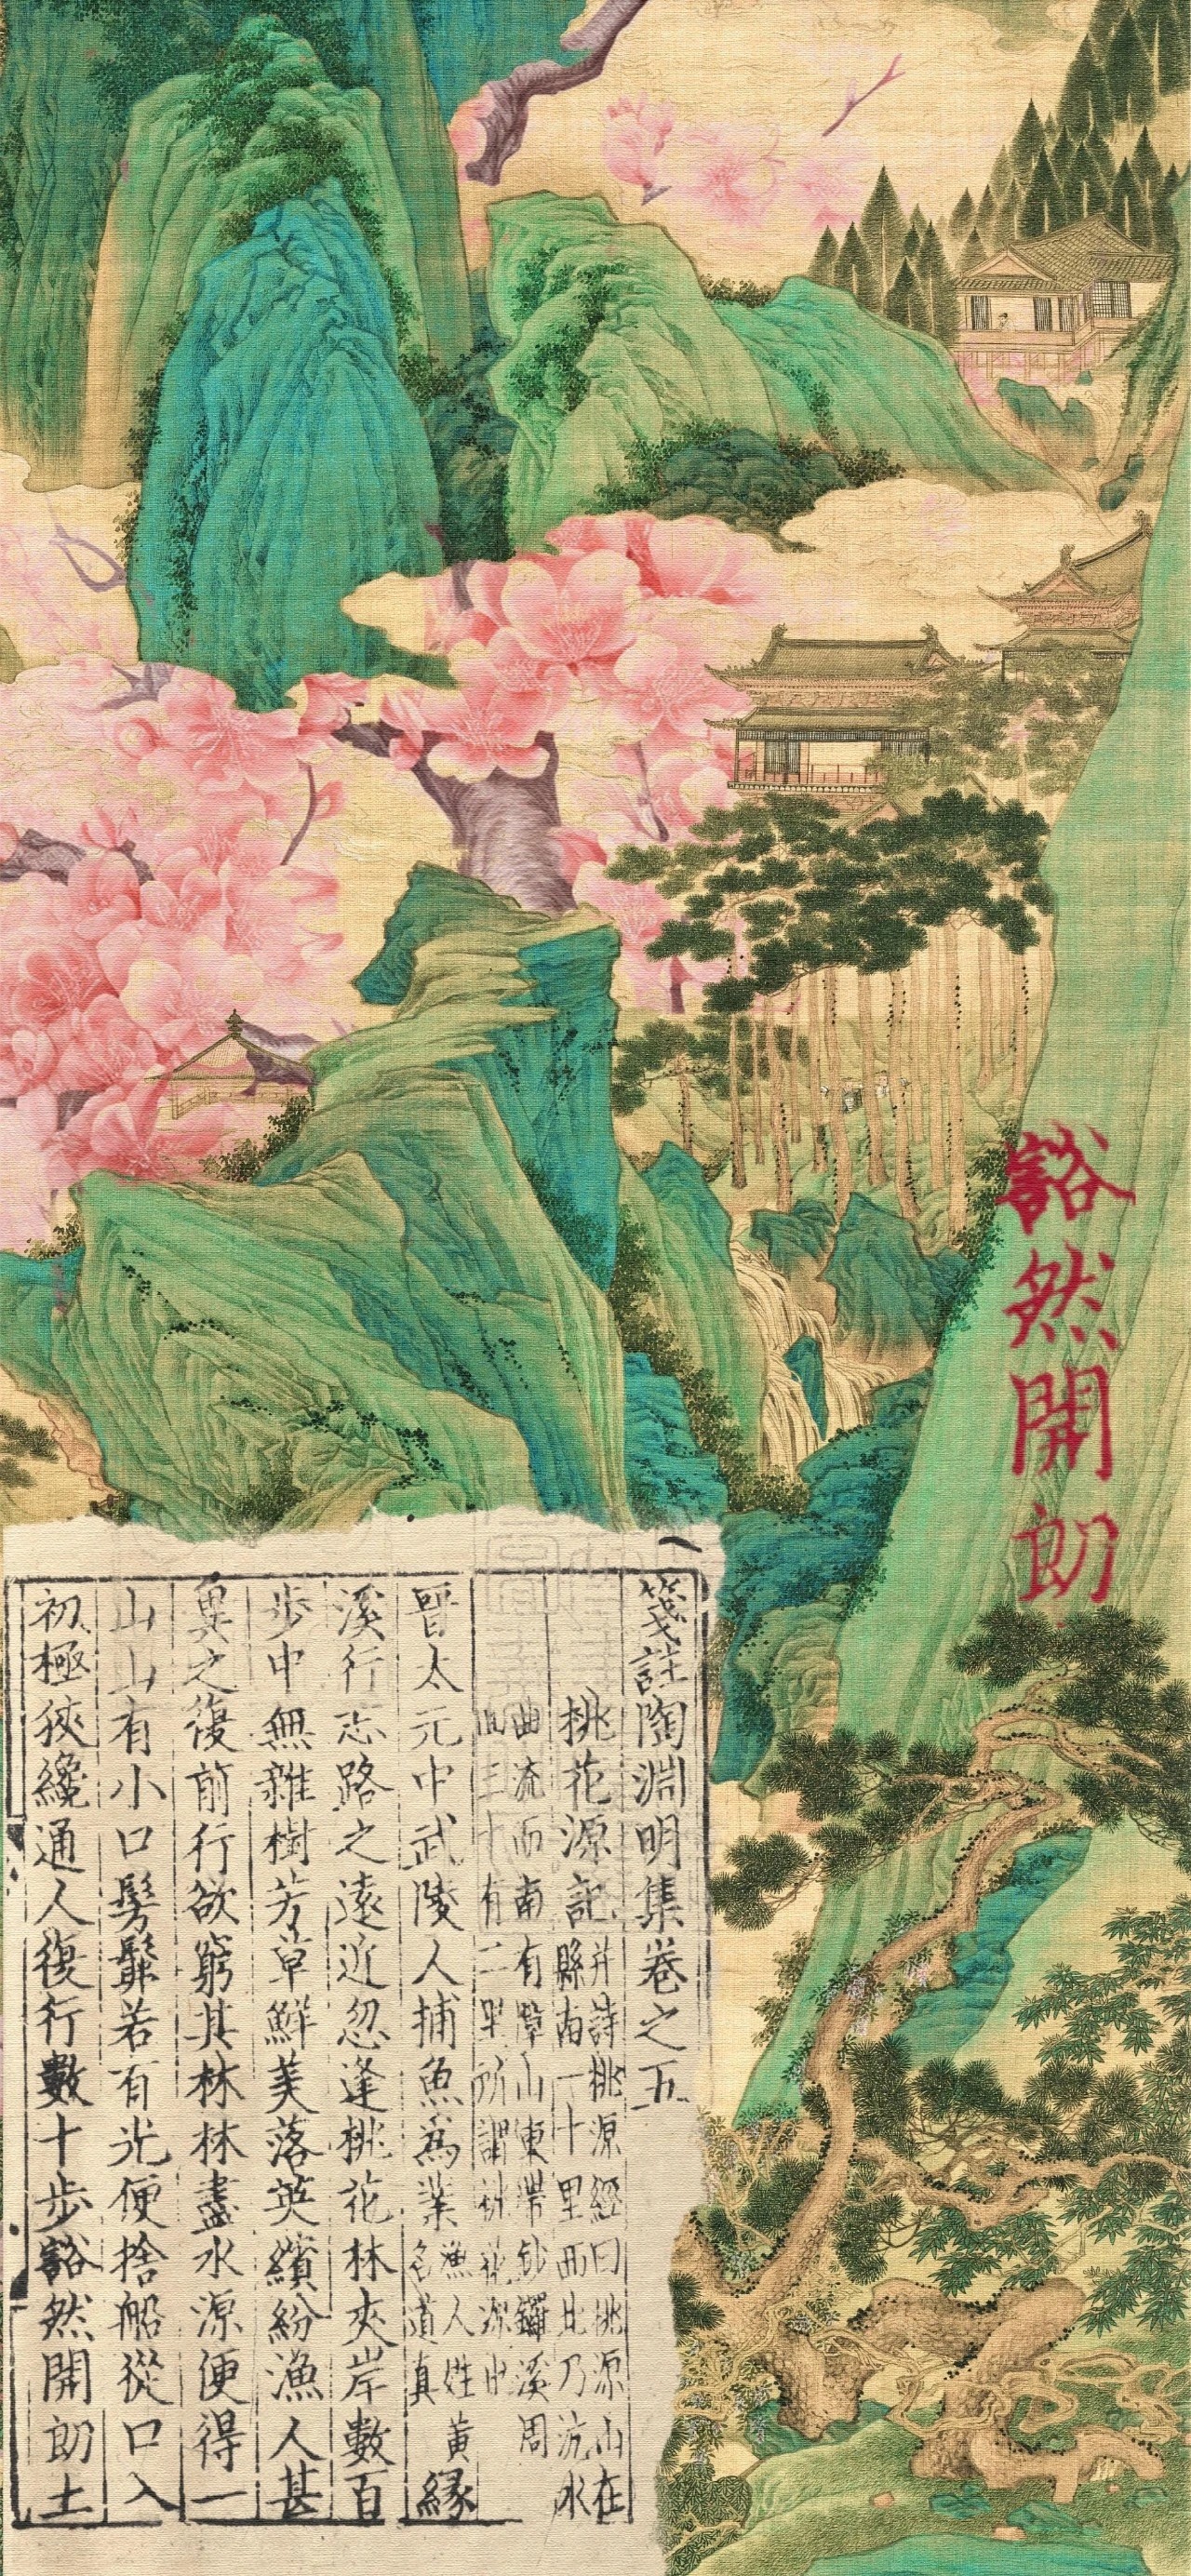 豁然開朗
箋註陶淵明集卷之五
桃花源記并詩桃源經曰桃源山在縣南一十里西北乃沅水
曲流而南有障山東帶鈔鑼溪周回三十有二里所謂桃花源也
晉太元中武陵人捕魚為業漁人姓黃名道真緣
溪行忘路之遠近忽逢桃花林夾岸數百
步中無雜樹芳草鮮美落英繽紛漁人甚
異之復前行欲窮其林林盡水源便得一
山山有小口髣髴若有光便捨船從口入
初極狹纔通人復行數十步豁然開朗土